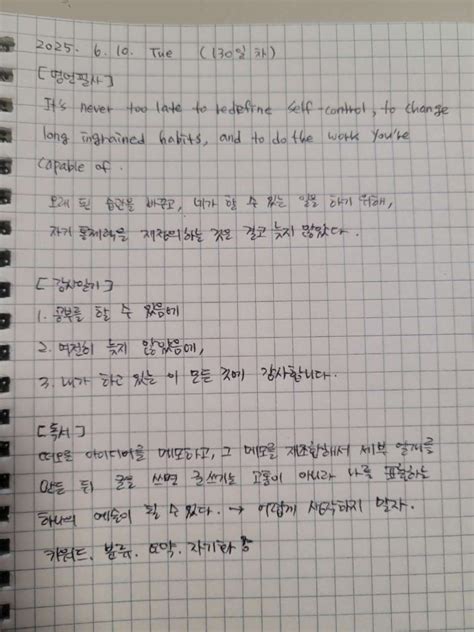 2025. 6. 10. Tue (130일 차)
[명언필사]
It's never too late to redefine self-control, to change
long ingrained habits, and to do the work you're
capable of.
오래 된 습관을 바꾸고, 내가 할 수 있는 일을 하기 위해,
자기 통제력을 재정의하는 것은 결코 늦지 않았다.
[감사일기]
1. 공부를 할 수 있음에
2. 여전히 늦지 않았음에,
3. 내가 하고 있는 이 모든 것에 감사합니다.
[독서]
떠오른 아이디어를 메모하고, 그 메모를 재조합해서 세부 얼개를
만든 뒤 글을 쓰면 글쓰기는 고통이 아니라 나를 표현하는
하나의 예술이 될 수 있다. → 어렵게 시작하지 말자.
키워드. 분류. 요약. 자기화